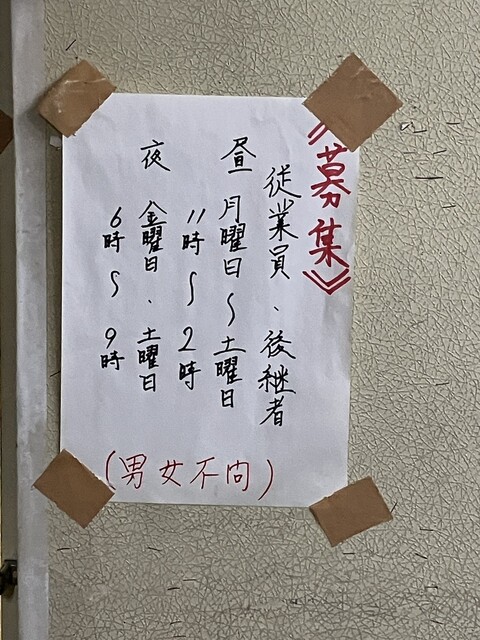 《募集》
従業員、後継者
昼 月曜日～土曜日
11時～2時
夜 金曜日、土曜日
6時～9時
(男女不問)